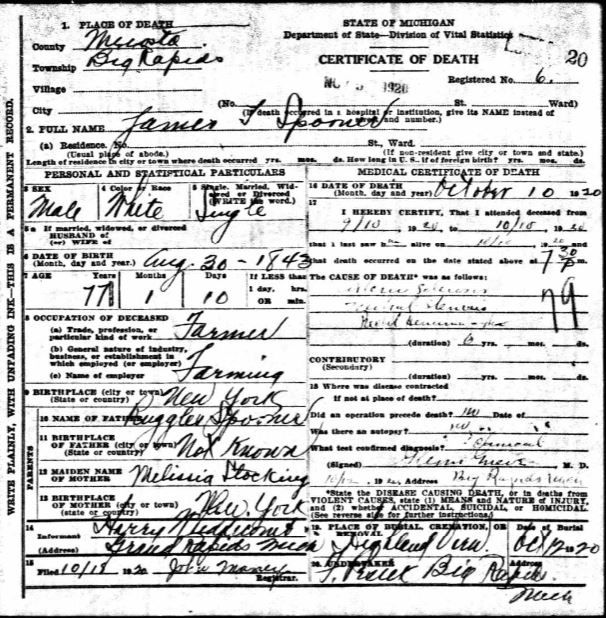 1. PLACE OF DEATH
County Mecosta
Township Big Rapids
Village
City
STATE OF MICHIGAN
Department of State—Division of Vital Statistics
20
CERTIFICATE OF DEATH
1920
Registered No. 6.
(No. St. Ward)
(If death occurred in a hospital or institution, give its NAME instead of street and number.)
2. FULL NAME James T Spooner
(a) Residence. No. St., Ward.
(Usual place of abode.) (If non-resident give city or town and state.)
Length of residence in city or town where death occurred yrs. mos. ds. How long in U. S., if of foreign birth? yrs. mos. ds.
PERSONAL AND STATISTICAL PARTICULARS
3 SEX
Male
4 Color or Race
White
5 Single, Married, Widowed or Divorced (WRITE the word.)
Single
5a If married, widowed, or divorced
HUSBAND of
(or) WIFE of
6 DATE OF BIRTH
(Month, day and year) Aug. 30 - 1843
7 AGE Years Months Days If LESS than
1 day, hrs.
OR min.
77 1 10
8 OCCUPATION OF DECEASED
(a) Trade, profession, or
particular kind of work Farmer
(b) General nature of industry,
business, or establishment in
which employed (or employer) Farming
(c) Name of employer
9 BIRTHPLACE (city or town)
(State or country) New York
PARENTS
10 NAME OF FATHER Ruggles Spooner
11 BIRTHPLACE
OF FATHER (city or town)
(State or country) Not Known
12 MAIDEN NAME
OF MOTHER Melissia Stocking
13 BIRTHPLACE
OF MOTHER (city or town)
(State or country) New York
14
Informant Harry
(Address) Grand Rapids Mich
15
Filed 10/1 1920 John
Registrar.
MEDICAL CERTIFICATE OF DEATH
16 DATE OF DEATH
(Month, day and year) October 10 1920
17
I HEREBY CERTIFY, That I attended deceased from
9/10, 1920 to 10/10, 1920
that I last saw h alive on 10/10, 1920 and
that death occurred on the date stated above at 7 30 P m.
The CAUSE OF DEATH* was as follows:
79
(duration) yrs. mos. ds.
CONTRIBUTORY
(Secondary)
(duration) yrs. mos. ds.
18 Where was disease contracted
if not at place of death?
Did an operation precede death? no Date of
Was there an autopsy? no
What test confirmed diagnosis?
(Signed) M. D.
1920 Address Big Rapids Mich
*State the DISEASE CAUSING DEATH, or in deaths from
VIOLENT CAUSES, state (1) MEANS and NATURE OF INJURY,
and (2) whether ACCIDENTAL, SUICIDAL, or HOMICIDAL.
(See reverse side for further instructions.)
19. PLACE OF BURIAL, CREMATION, OR REMOVAL Date of Burial
Highland View. Oct 12 1920
20. UNDERTAKER Address
Big Rapids.
Mich
WRITE PLAINLY, WITH UNFADING INK—THIS IS A PERMANENT RECORD.